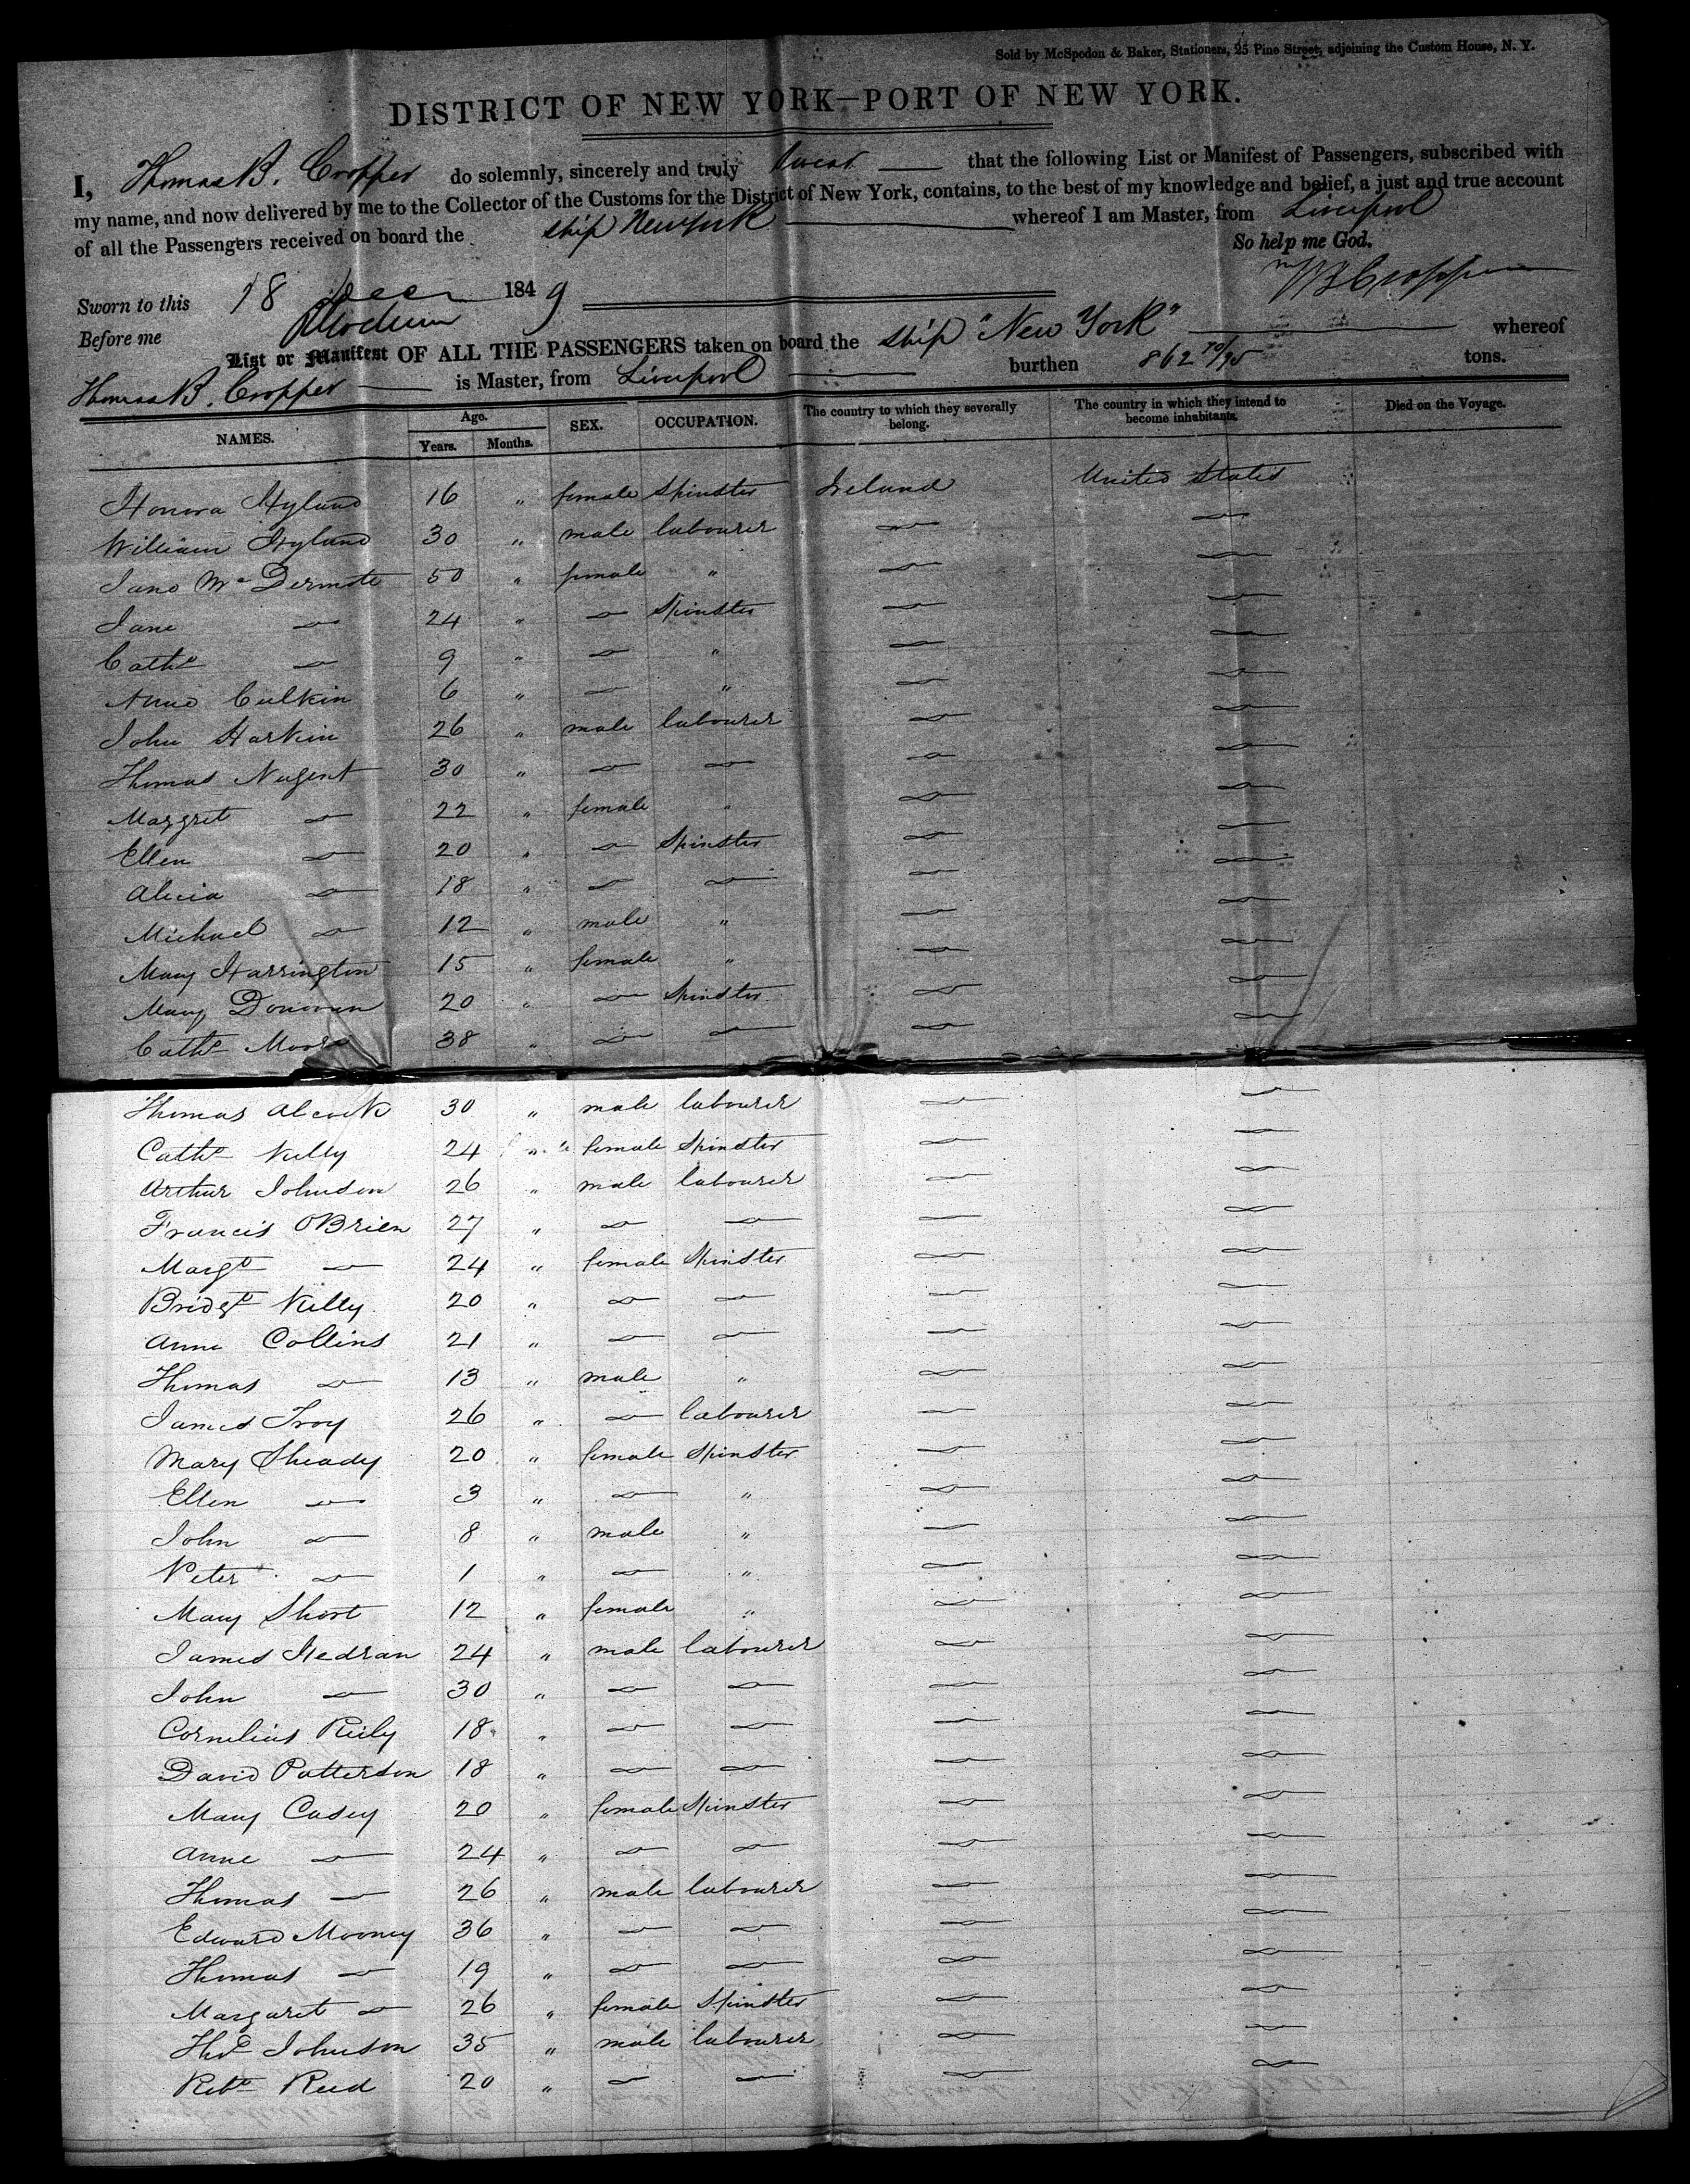 Sold by McSpedon & Baker, Stationers, 25 Pine Street, adjoining the Custom House, N. Y.
DISTRICT OF NEW YORK—PORT OF NEW YORK.
I, Thomas B. Cropper do solemnly, sincerely and truly swear that the following List or Manifest of Passengers, subscribed with
my name, and now delivered by me to the Collector of the Customs for the District of New York, contains, to the best of my knowledge and belief, a just and true account
of all the Passengers received on board the ship New York whereof I am Master, from Liverpool
So help me God.
Sworn to this 18 Decr 1849 T B Cropper
Before me
List or Manifest OF ALL THE PASSENGERS taken on board the ship "New York" whereof
Thomas B. Cropper is Master, from Liverpool burthen 862 70/95 tons.
NAMES. Age. Years. Months. SEX. OCCUPATION. The country to which they severally belong. The country in which they intend to become inhabitants. Died on the Voyage.
Honora Hyland 16 " female Spinster Ireland United States
William Hyland 30 " male labourer
Jane McDermote 50 " female "
Jane — 24 " — Spinster
Cathe — 9 " — "
Anne Culkin 6 " — "
John Harkin 26 " male labourer
Thomas Nugent 30 " — —
Margret — 22 " female "
Ellen — 20 " — Spinster
Alicia — 18 " — —
Michael — 12 " male "
Mary Harrington 15 " female "
Mary Donovan 20 " — Spinster
Cathe Moore 38 " — —
Thomas Alcock 30 " male labourer
Cathe Kelly 24 " female Spinster
Arthur Johnson 26 " male labourer
Francis OBrien 27 " — —
Margt — 24 " female Spinster
Bridgt Kelly 20 " — —
Anne Collins 21 " — —
Thomas — 13 " male "
James Troy 26 " — labourer
Mary Sheady 20 " female Spinster
Ellen — 3 " — "
John — 8 " male "
Peter — 1 " — "
Mary Short 12 " female "
James Hedran 24 " male labourer
John — 30 " — —
Cornelius Reily 18 " — —
David Patterson 18 " — —
Mary Casey 20 " female Spinster
Anne — 24 " — —
Thomas — 26 " male labourer
Edward Mooney 36 " — —
Thomas — 19 " — —
Margaret — 26 " female Spinster
Thos Johnson 35 " male labourer
Robt Reed 20 " — —